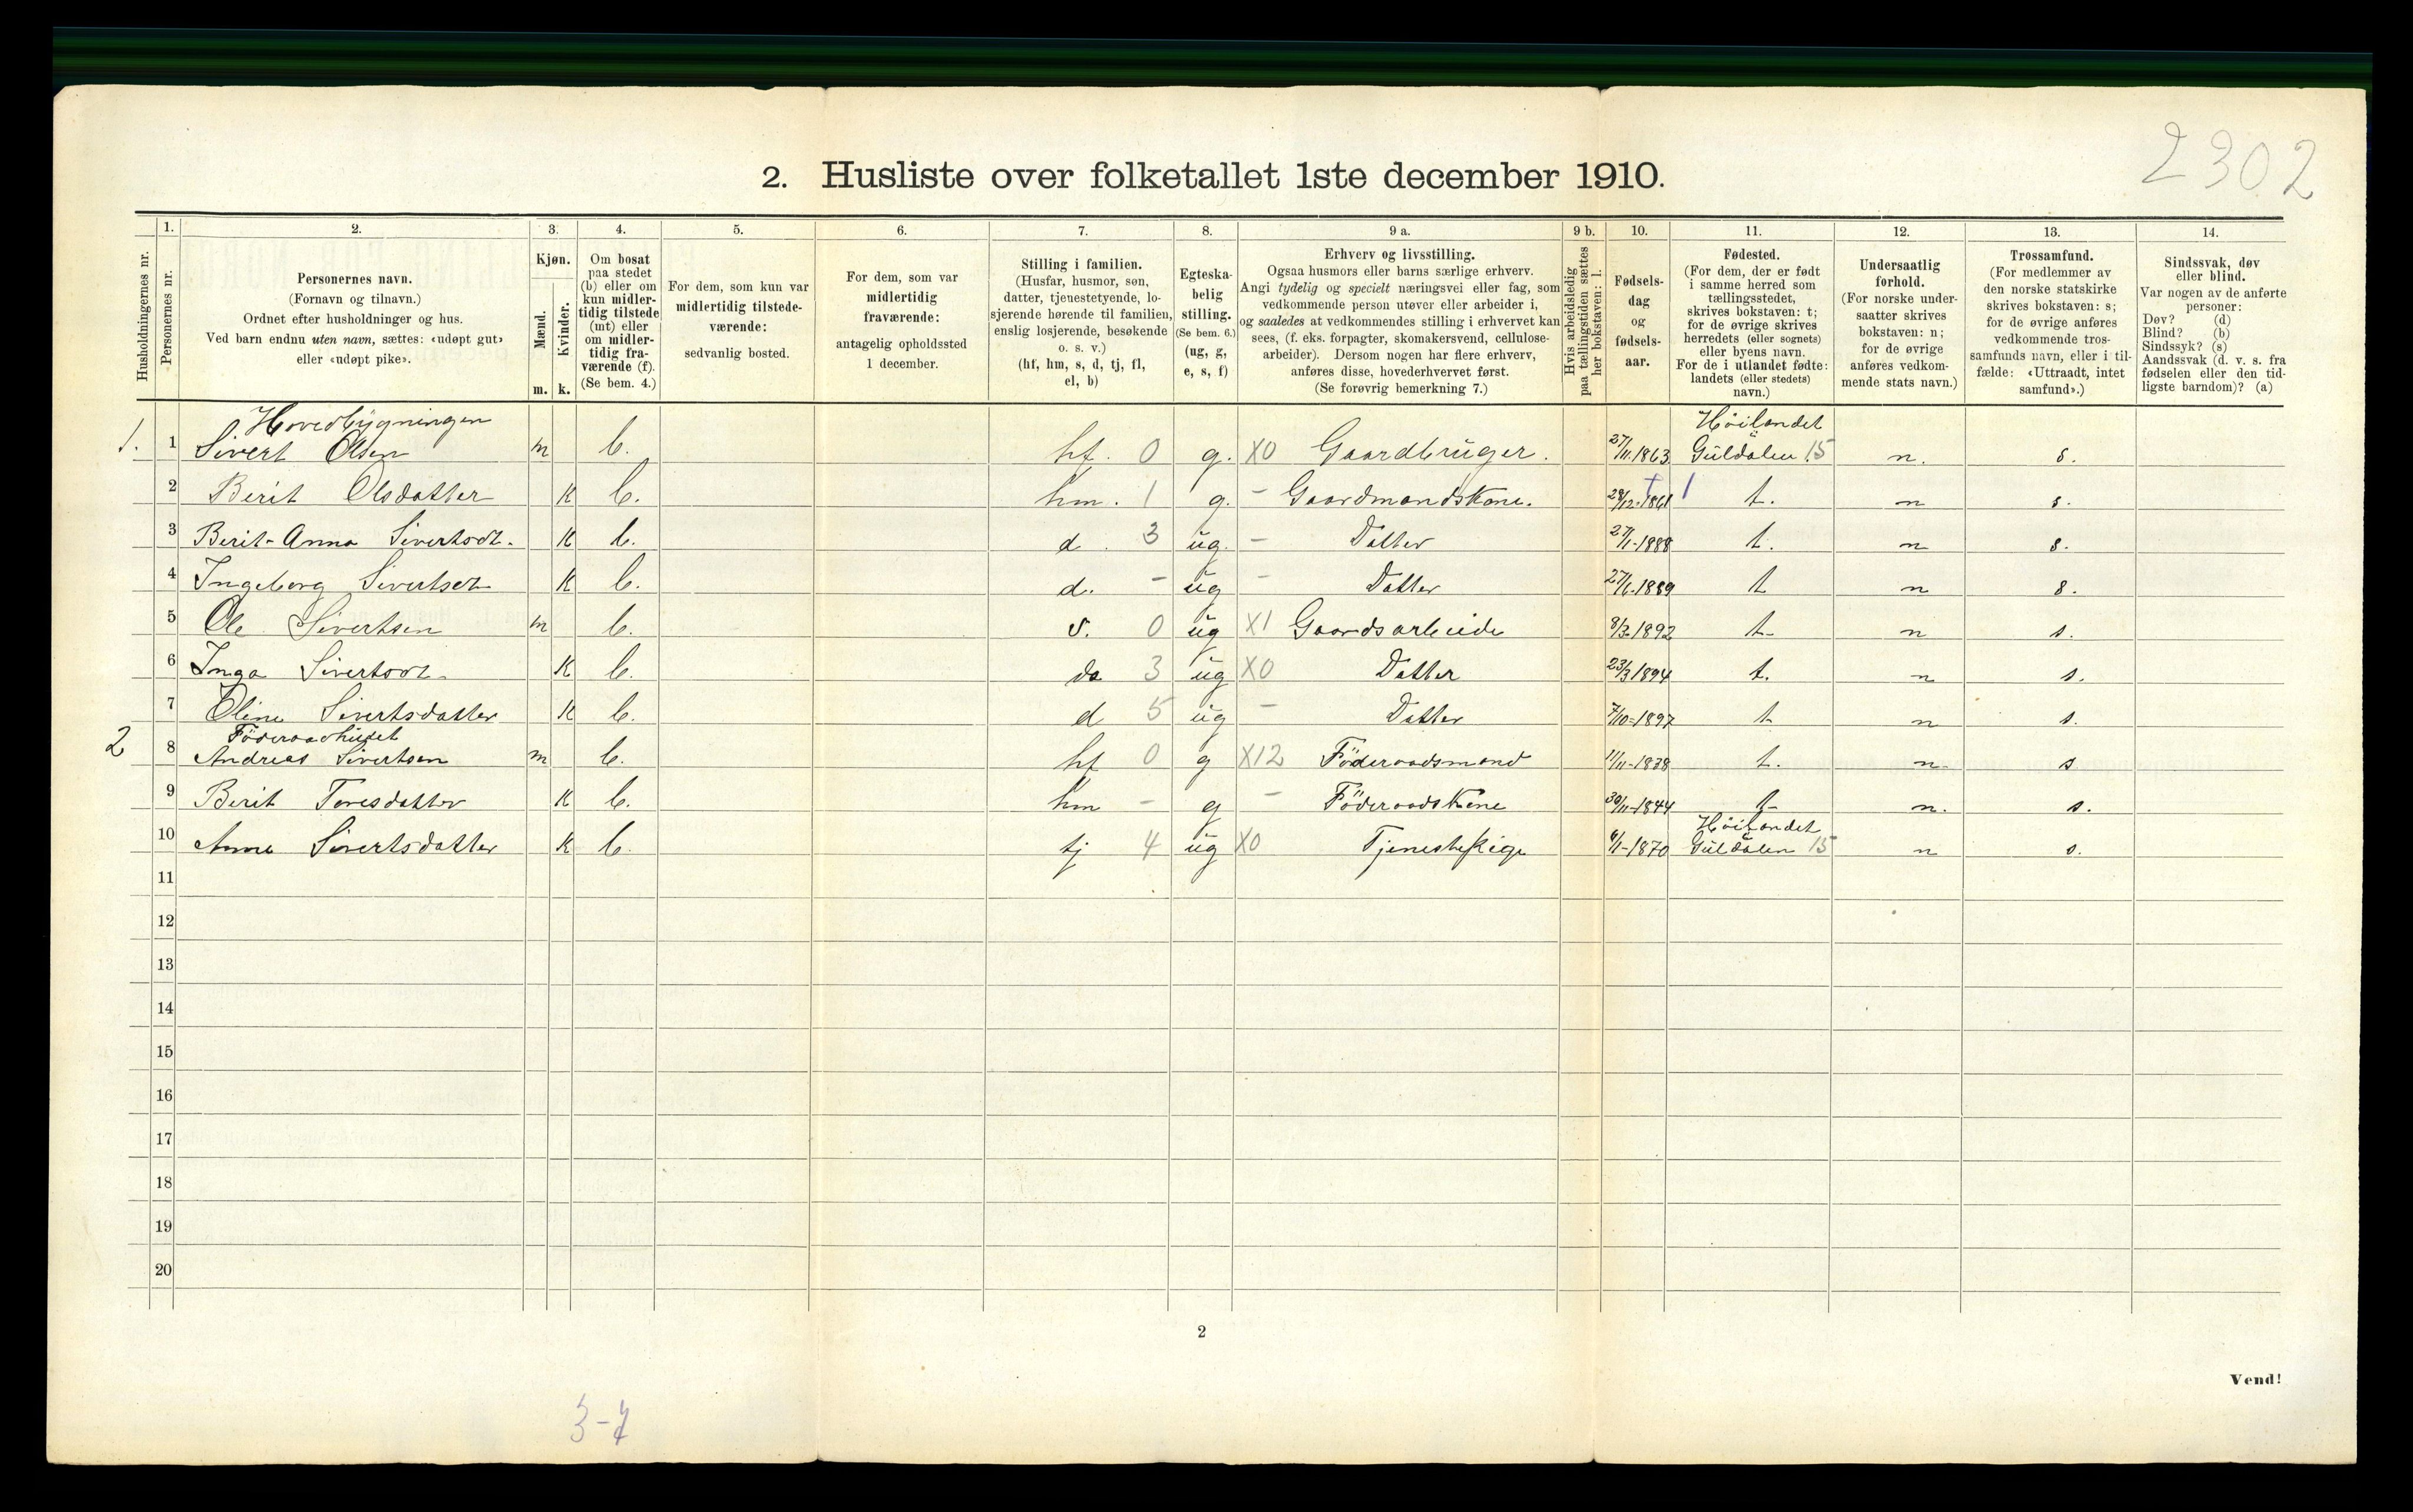 2302
2. Husliste over folketallet 1ste december 1910.
Husholdningernes nr.
1. Personernes nr.
2. Personernes navn. (Fornavn og tilnavn.) Ordnet efter husholdninger og hus. Ved barn endnu uten navn, sættes: «udøpt gut» eller «udøpt pike».
3. Kjøn. Mænd. m. Kvinder. k.
4. Om bosat paa stedet (b) eller om kun midlertidig tilstede (mt) eller om midlertidig fraværende (f). (Se bem. 4.)
5. For dem, som kun var midlertidig tilstedeværende: sedvanlig bosted.
6. For dem, som var midlertidig fraværende: antagelig opholdssted 1 december.
7. Stilling i familien. (Husfar, husmor, søn, datter, tjenestetyende, losjerende hørende til familien, enslig losjerende, besøkende o. s. v.) (hf, hm, s, d, tj, fl, el, b)
8. Egteskabelig stilling. (Se bem. 6.) (ug, g, e, s, f)
9 a. Erhverv og livsstilling. Ogsaa husmors eller barns særlige erhverv. Angi tydelig og specielt næringsvei eller fag, som vedkommende person utøver eller arbeider i, og saaledes at vedkommendes stilling i erhvervet kan sees, (f. eks. forpagter, skomakersvend, cellulosearbeider). Dersom nogen har flere erhverv, anføres disse, hovederhvervet først. (Se forøvrig bemerkning 7.)
9 b. Hvis arbeidsledig paa tællingstiden sættes her bokstaven: l.
10. Fødselsdag og fødselsaar.
11. Fødested. (For dem, der er født i samme herred som tællingsstedet, skrives bokstaven: t; for de øvrige skrives herredets (eller sognets) eller byens navn. For de i utlandet fødte: landets (eller stedets) navn.)
12. Undersaatlig forhold. (For norske undersaatter skrives bokstaven: n; for de øvrige anføres vedkommende stats navn.)
13. Trossamfund. (For medlemmer av den norske statskirke skrives bokstaven: s; for de øvrige anføres vedkommende trossamfunds navn, eller i tilfælde: «Uttraadt, intet samfund».)
14. Sindssvak, døv eller blind. Var nogen av de anførte personer: Døv? (d) Blind? (b) Sindssyk? (s) Aandssvak (d. v. s. fra fødselen eller den tidligste barndom)? (a)
Hovedbygningen Höilandet
1. 1 Sivert Olsen m b. hf. 0 g. X0 Gaardbruger. 27/11.1863 Guldalen 15 n. s.
2 Berit Olsdatter K b. hm. 1 g. - Gaardmandskone. 28/12.1861 t. n s.
3 Berit-Anna Sivertsdt. K b. d. 3 ug. - Datter 27/1-1888 t. n s.
4 Ingeborg Sivertsdt K b. d. - ug - Datter 27/6.1889 t n s.
5 Ole Sivertsen m b. s. 0 ug X1 Gaardsarbeide 8/3-1892 t- n s.
6 Inga Sivertsdt. K b. da 3 ug X0 Datter 23/3 1894 t. n s.
7 Oline Sivertsdatter K b. d 5 ug - Datter 7/10-1897 t n s.
Föderaadhuset
2 8 Andreas Sivertsen m b. hf 0 g X12 Föderaadsmand 11/11-1838 t. n s
9 Berit Toresdatter K b. hm - g - Föderaadskone 30/11-1844 t- n. s.
Höilandet
10 Anne Sivertsdatter K b. tj 4 ug X0 Tjenestepige 6/1-1870 Guldalen 15 n s.
11
12
13
14
15
16
17
18
19
20
2
Vend!
3-7